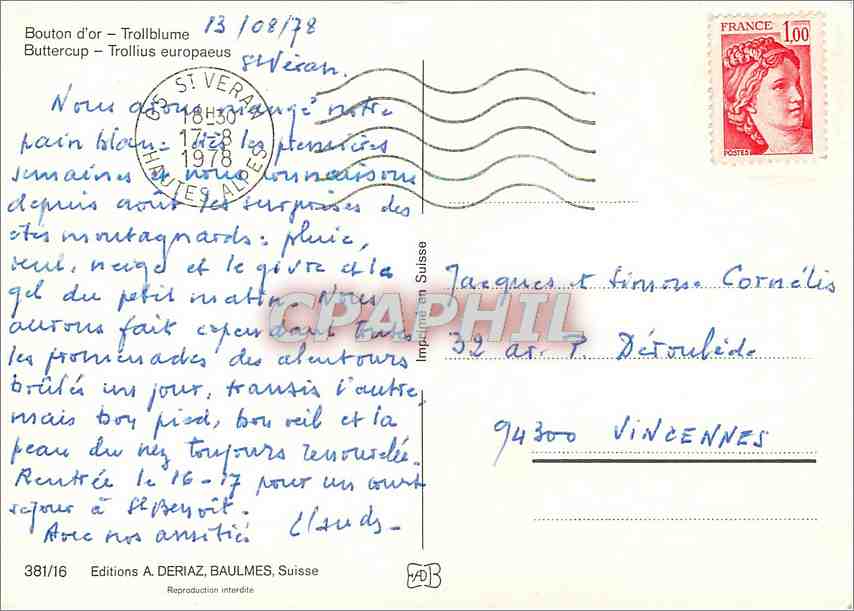 Bouton d'or – Trollblume
Buttercup – Trollius europaeus
13/08/78
St Véran.
FRANCE 1,00
POSTES
05 ST VERAN
18H30
17-8
1978
HAUTES ALPES
Nous avons mangé notre
pain blanc dès les premières
semaines et nous connaissons
depuis août les surprises des
étés montagnards : pluie,
vent, neige et le givre et la
gel du petit matin. Nous
aurons fait cependant toutes
les promenades des alentours
brûlés un jour, transis l'autre,
mais bon pied, bon oeil et la
peau du nez toujours renouvelée.
Rentrée le 16-17 pour un court
séjour à St Benoît.
Avec nos amitiés Claude
Imprimé en Suisse
Jacques et Simone Cornélis
32 av. P. Déroulède
94300 VINCENNES
CPAPHIL
381/16 Editions A. DERIAZ, BAULMES, Suisse
Reproduction interdite
EADB